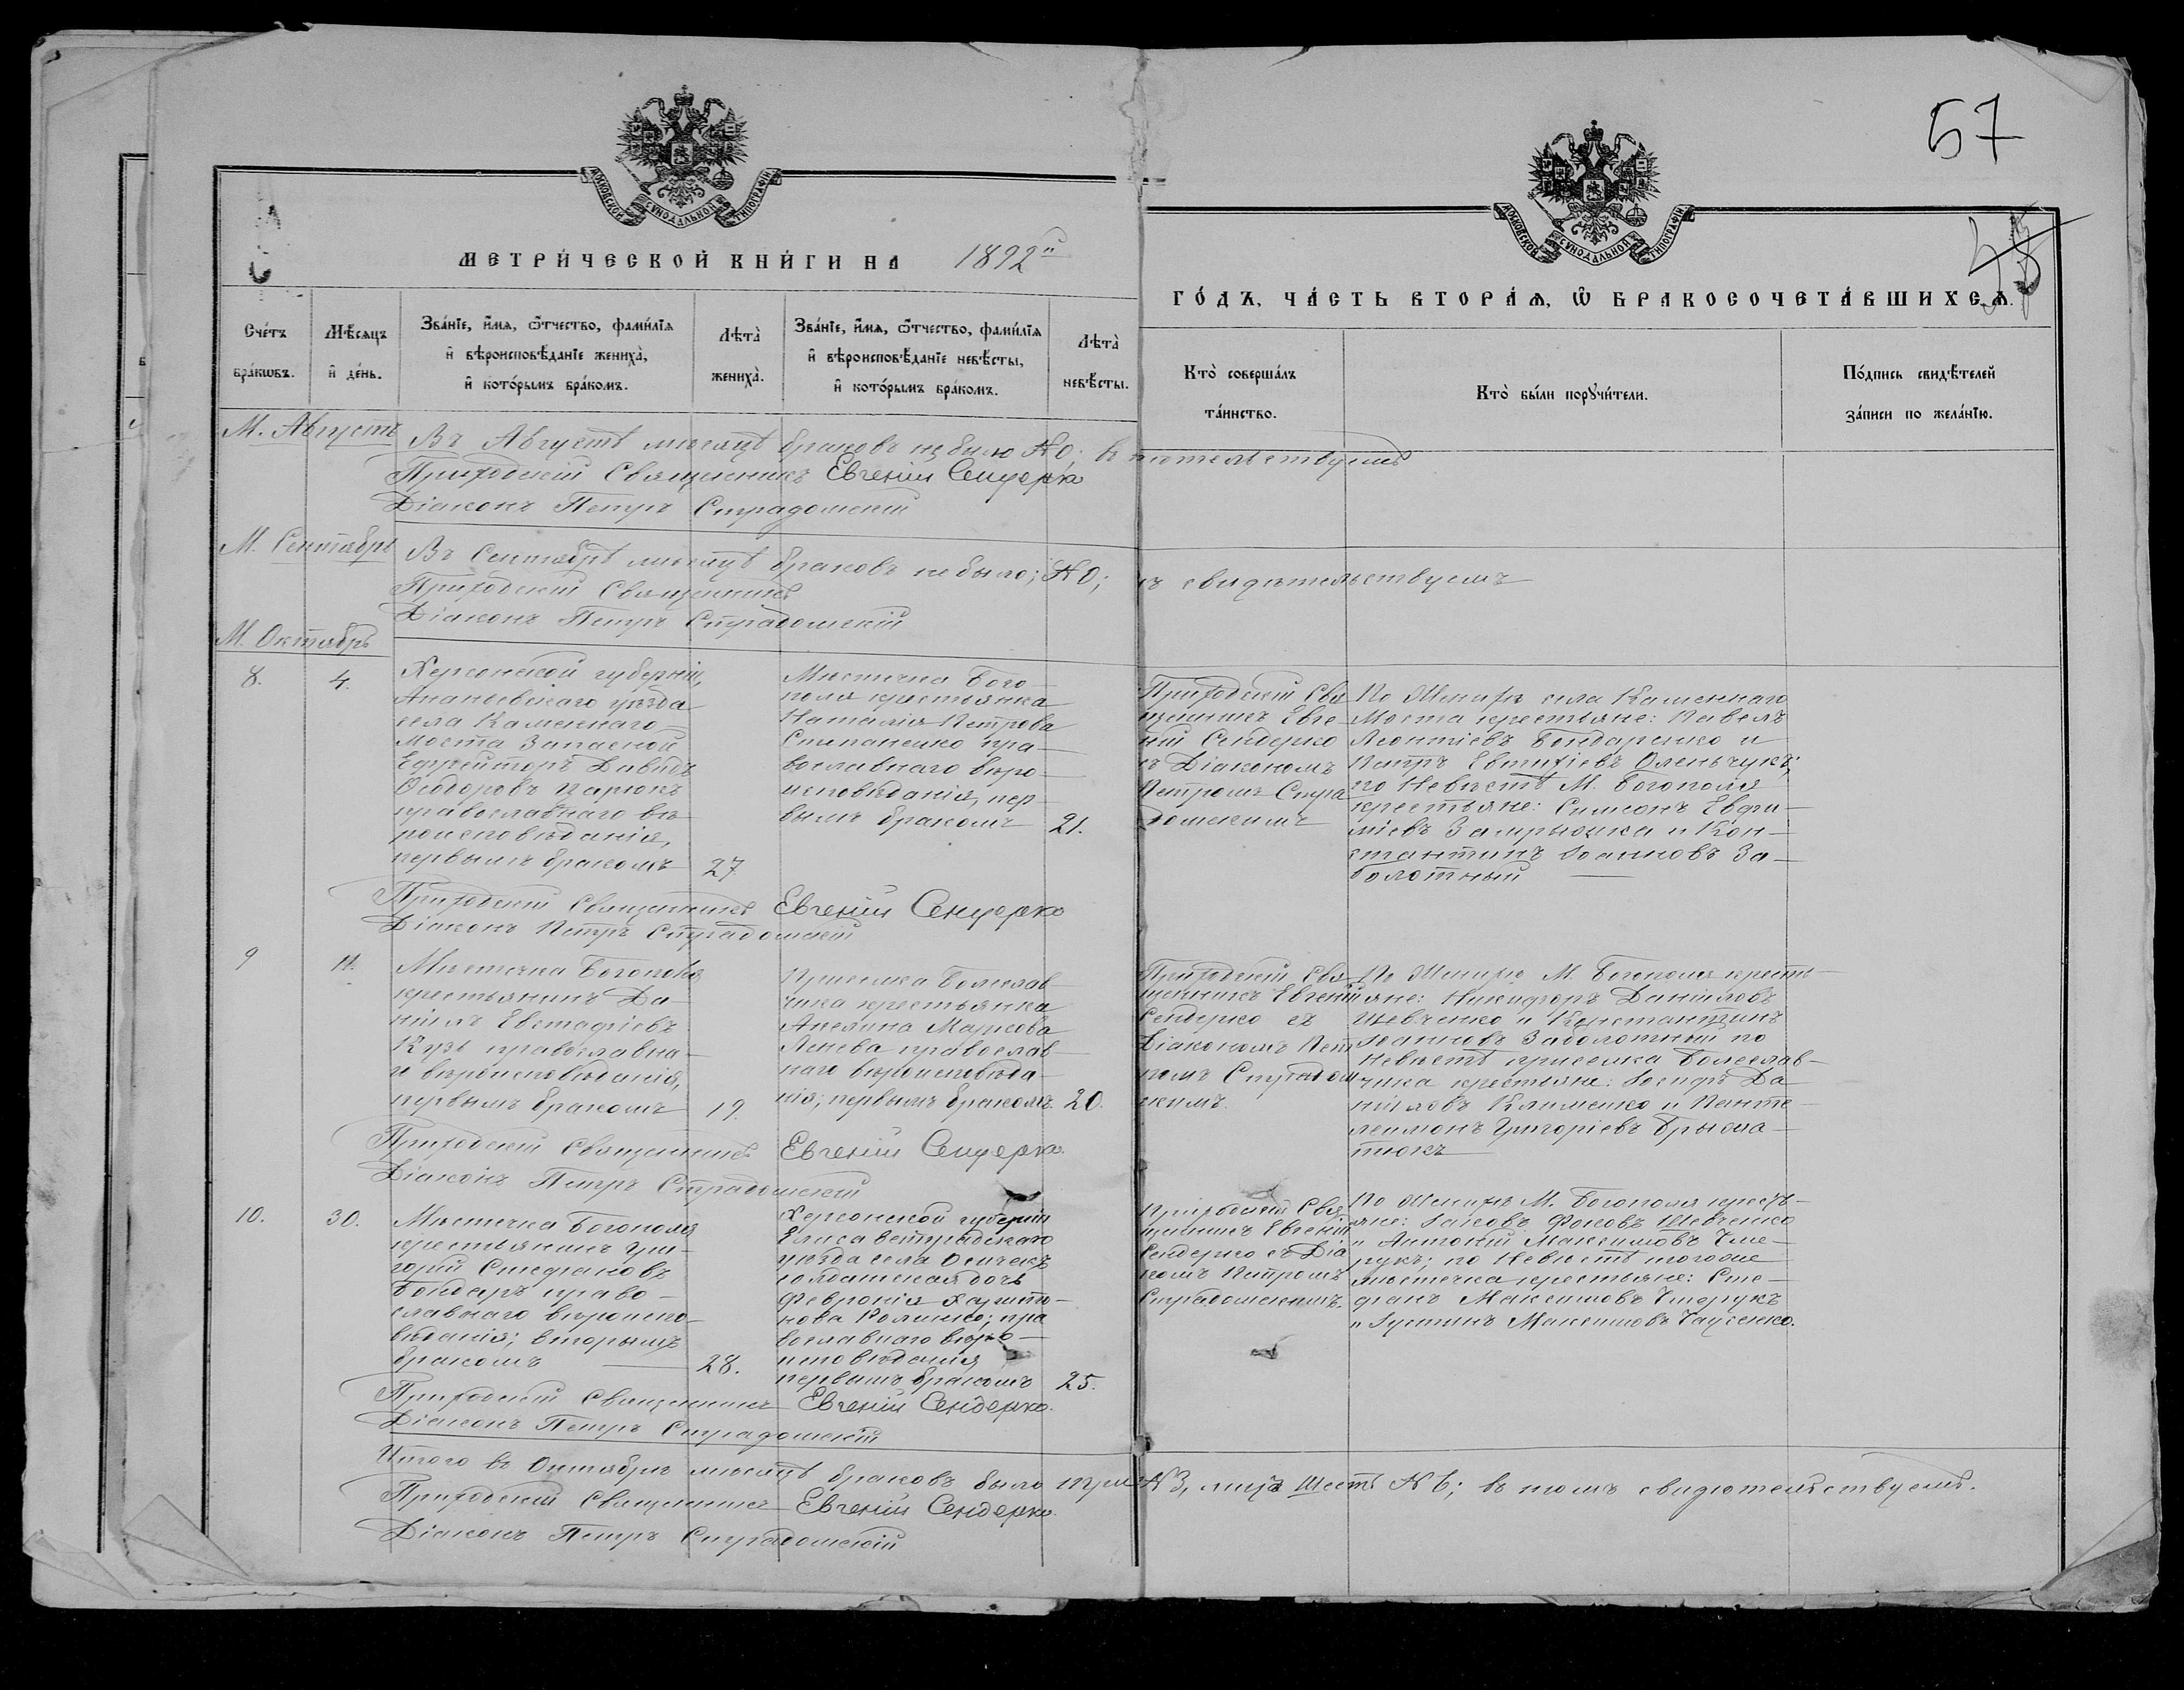 57
МОСКОВСКОЙ СѴНОДАЛЬНОЙ ТИПОГРАФІИ
МОСКОВСКОЙ СѴНОДАЛЬНОЙ ТИПОГРАФІИ
МЕТРИ́ЧЕСКОЙ КНИ́ГИ НА 1892й
ГО́ДЪ, ЧА́СТЬ ВТОРА́Ѧ, Ѿ БРАКОСОЧЕТА́ВШИХСѦ.
Сче́тъ
бра́кѡвъ.
Мѣ́сѧцъ
и҆ де́нь.
Зва́нїе, и҆́мѧ, ѻ҆́тчество, фами́лїѧ
и҆ вѣроисповѣ́данїе жениха̀,
и҆ кото́рымъ бра́комъ.
Лѣта̀
жениха̀.
Зва́нїе, и҆́мѧ, ѻ҆́тчество, фами́лїѧ
и҆ вѣроисповѣ́данїе невѣ́сты,
и҆ кото́рымъ бра́комъ.
Лѣта̀
невѣ́сты.
Кто̀ соверша́лъ
та́инство.
Кто̀ бы́ли порꙋчи́тели.
По́дпись свидѣ́телей
за́писи по жела́нїю.
М. Августъ
Въ Августѣ мѣсяцѣ браковъ не было № 0;
Приходскій Священникъ Евгеній Сендерко
Діаконъ Петръ Страдомскій
М. Сентябрь
Въ Сентябрѣ мѣсяцѣ браковъ не было; № 0; свидѣтельствуемъ
Приходскій Священникъ
Діаконъ Петръ Страдомскій
М. Октябрь
8.
4.
Херсонской губерніи,
Ананьевскаго уѣзда
села Каменнаго
Моста Запасной
Ефрейторъ Давидъ
Ѳеодоровъ Парюкъ
православнаго вѣ-
роисповѣданія,
первымъ бракомъ
27
Мѣстечка Бого-
поля крестьянка
Наталія Петрова
Степаненко пра-
вославнаго вѣро-
исповѣданія, пер-
вымъ бракомъ
21.
Приходскій Свя
щенникъ Евге-
ній Сендерко
съ Діакономъ
Петромъ Стра
домскимъ
По Женихѣ села Каменнаго
Моста крестьяне: Павелъ
Леонтіевъ Бондаренко и
Петръ Евтихіевъ Оленьчукъ;
по Невѣстѣ М. Богополя
крестьяне: Симеонъ Евфи-
міевъ и Кон-
стантинъ Іоанновъ За-
болотный
Приходскій Священникъ Евгеній Сендерко
Діаконъ Петръ Страдомскій
9
11.
Мѣстечка Богополя
крестьянинъ Да-
ніилъ Евстафіевъ
Кузь православна-
го вѣроисповѣданія,
первымъ бракомъ
19.
Приселка Болеслав-
чика крестьянка
Акелина Маркова
Ленева православ-
наго вѣроисповѣда-
нія; первымъ бракомъ.
20.
Приходскій Свя-
щенникъ Евгеній
Сендерко съ
Діакономъ Пет
ромъ Страдом
скимъ.
По Женихѣ М. Богополя кресть-
яне: Никифоръ Даніиловъ
Шевченко и Константинъ
Іоанновъ Заболотный по
Невѣстѣ приселка Болеслав-
чика крестьяне: Іосифъ Да-
ніиловъ Клименко и Панте-
леимонъ Григоріевъ
тюкъ
Приходскій Священникъ Евгеній Сендерко.
Діаконъ Петръ Страдомскій
10.
30.
Мѣстечка Богополя
крестьянинъ Гри-
горій Стефановъ
Бондарь право-
славнаго вѣроиспо-
вѣданія; вторымъ
бракомъ
28.
Херсонской губерніи
Елисаветградскаго
уѣзда села Осичекъ
солдатская дочь
Февронія Харито-
нова пра
вославнаго вѣро-
исповѣданія,
первымъ бракомъ
25.
Приходскій Свя
щенникъ Евгеній
Сендерко съ Діа
комъ Петромъ
Страдомскимъ.
По Женихѣ М. Богополя кресть-
яне: Іаковъ Фоковъ Шевченко
и Антоній Максимовъ
по Невѣстѣ тогоже
мѣстечка крестьяне: Сте-
фанъ Максимовъ
и Іустинъ Максимовъ
Приходскій Священникъ Евгеній Сендерко.
Діаконъ Петръ Страдомскій
Итого въ Октябрѣ мѣсяцѣ браковъ было три № 3, лицъ шесть № 6; въ томъ свидѣтельствуемъ.
Приходскій Священникъ Евгеній Сендерко.
Діаконъ Петръ Страдомскій